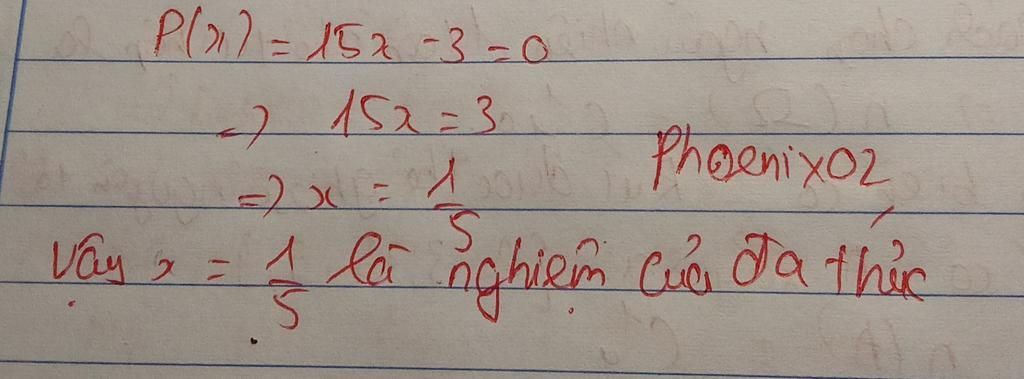 P(x) = 15x - 3 = 0
=> 15x = 3
Phoenix02
=> x = 1/5
Vậy x = 1/5 là nghiệm của đa thức